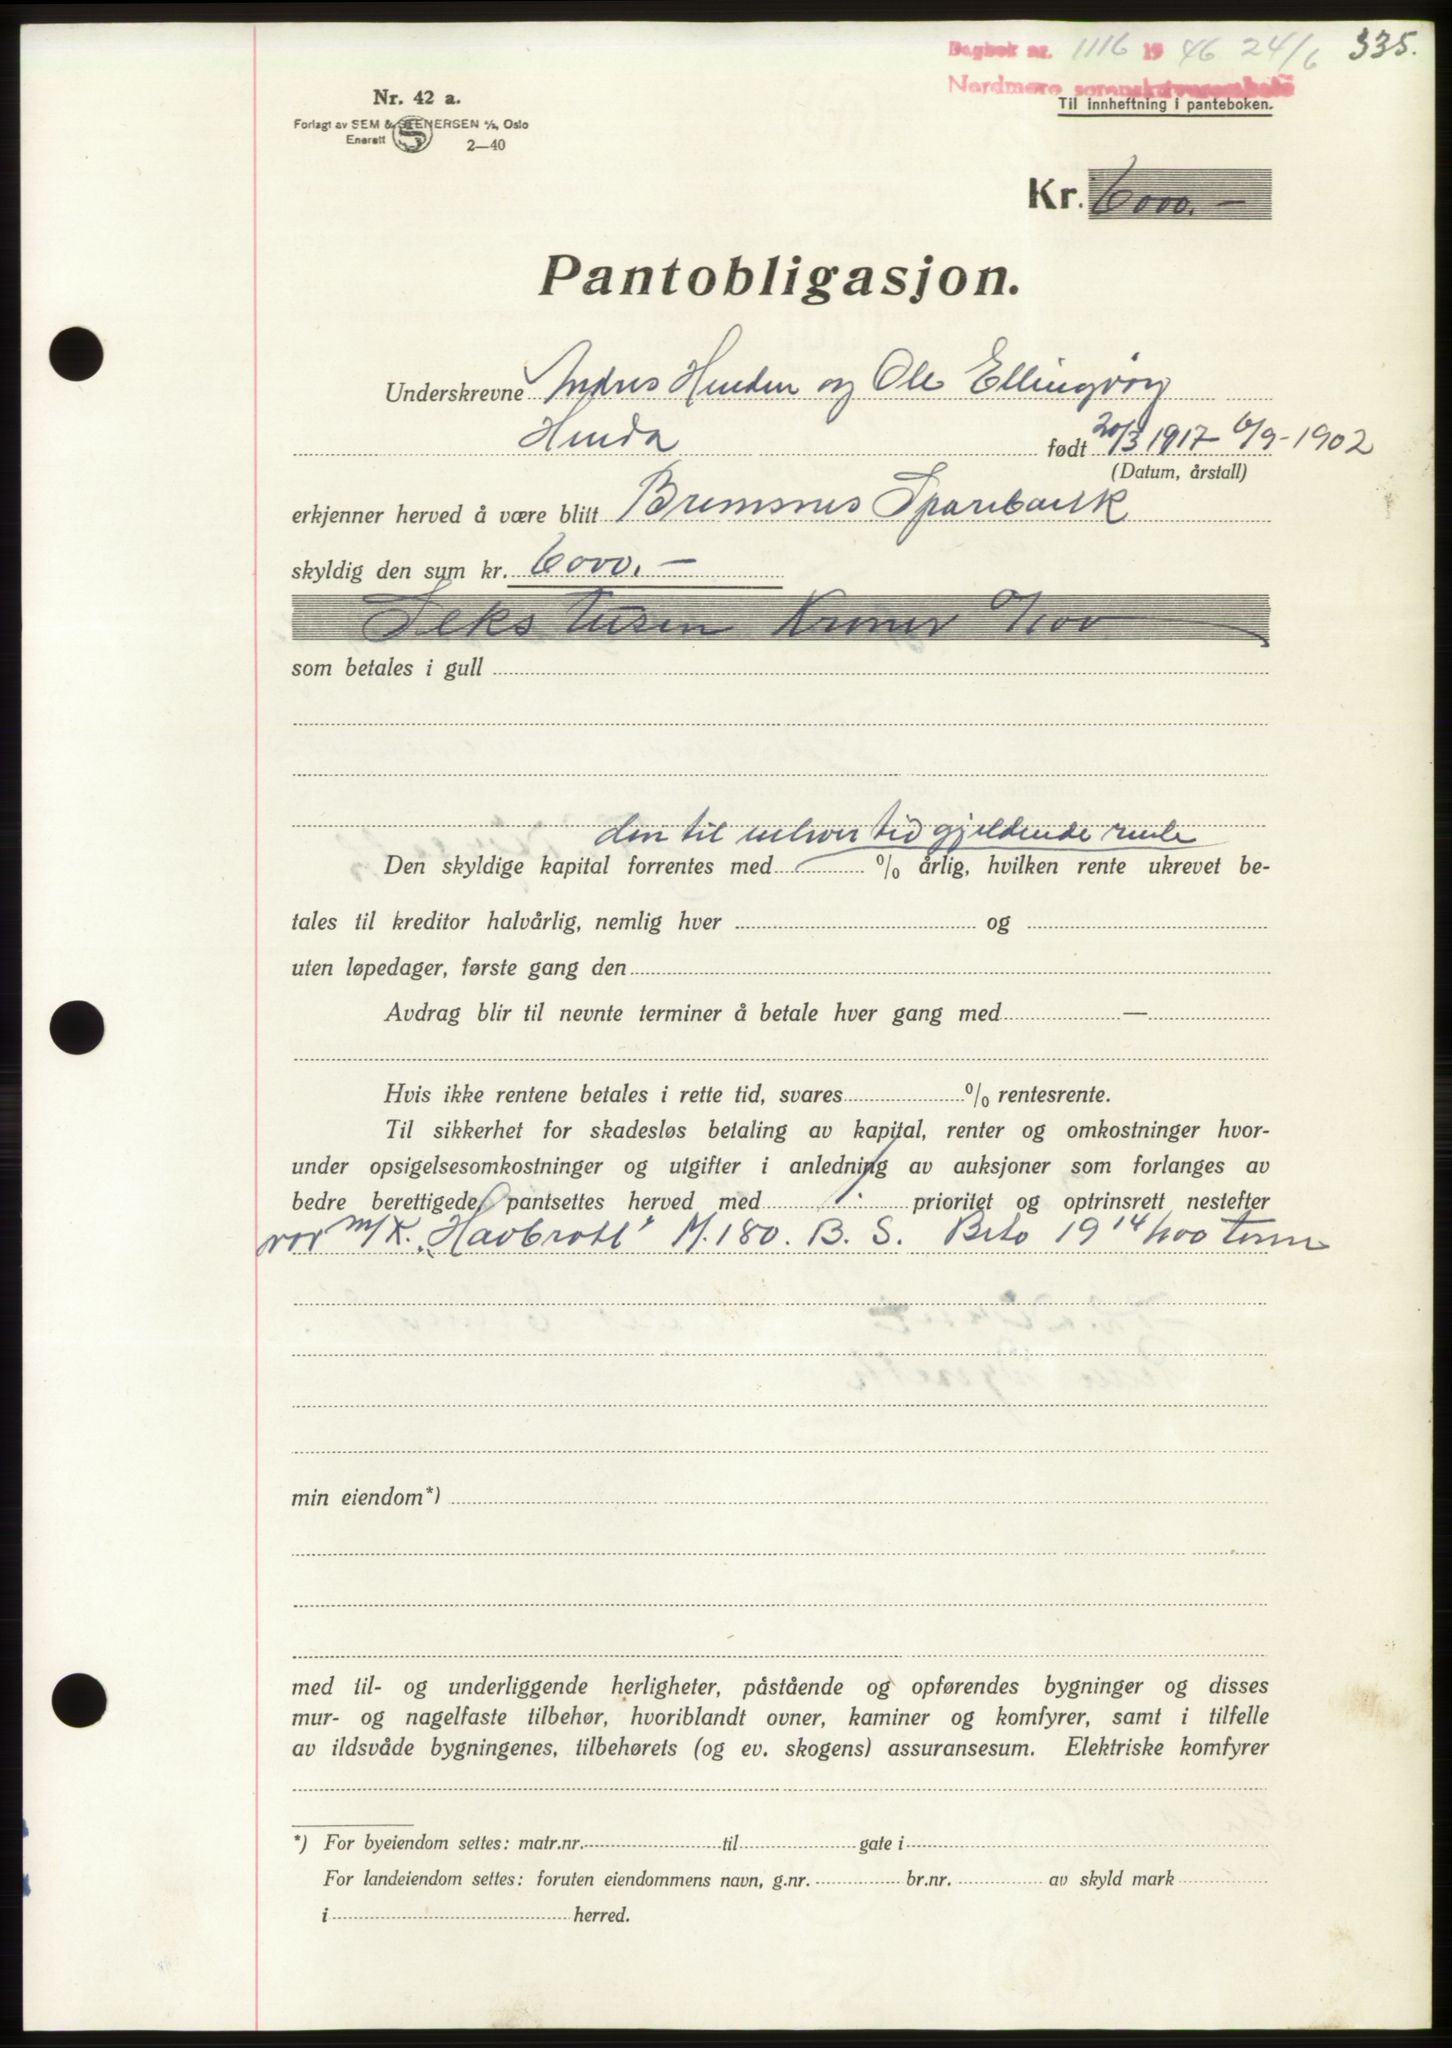 Dagbok nr. 1116 1946 24/6 335.
Nordmøre sorenskriverembete
Til innheftning i panteboken.
Nr. 42 a.
Forlagt av SEM & STENERSEN A/S, Oslo
Enerett
2—40
Kr. 6000.—
Pantobligasjon.
Underskrevne Andres og Ole Ellingvåg
født 20/3 1917- 6/9-1902
(Datum, årstall)
erkjenner herved å være blitt Bremsnes Sparebank
skyldig den sum kr. 6000.—
Seks tusen Kroner 0/100
som betales i gull
den til enhver tid gjeldende rente
Den skyldige kapital forrentes med % årlig, hvilken rente ukrevet be-
tales til kreditor halvårlig, nemlig hver og
uten løpedager, første gang den
Avdrag blir til nevnte terminer å betale hver gang med —
Hvis ikke rentene betales i rette tid, svares % rentesrente.
Til sikkerhet for skadesløs betaling av kapital, renter og omkostninger hvor-
under opsigelsesomkostninger og utgifter i anledning av auksjoner som forlanges av
bedre berettigede, pantsettes herved med 1. prioritet og optrinsrett nestefter
vor M/K. „Havbrott" M.180.B.S. Brto 19 14/100 tonn
min eiendom*)
med til- og underliggende herligheter, påstående og opførendes bygninger og disses
mur- og nagelfaste tilbehør, hvoriblandt ovner, kaminer og komfyrer, samt i tilfelle
av ildsvåde bygningenes, tilbehørets (og ev. skogens) assuransesum. Elektriske komfyrer
*) For byeiendom settes: matr.nr. til gate i
For landeiendom settes: foruten eiendommens navn, g.nr. br.nr. av skyld mark
i herred.